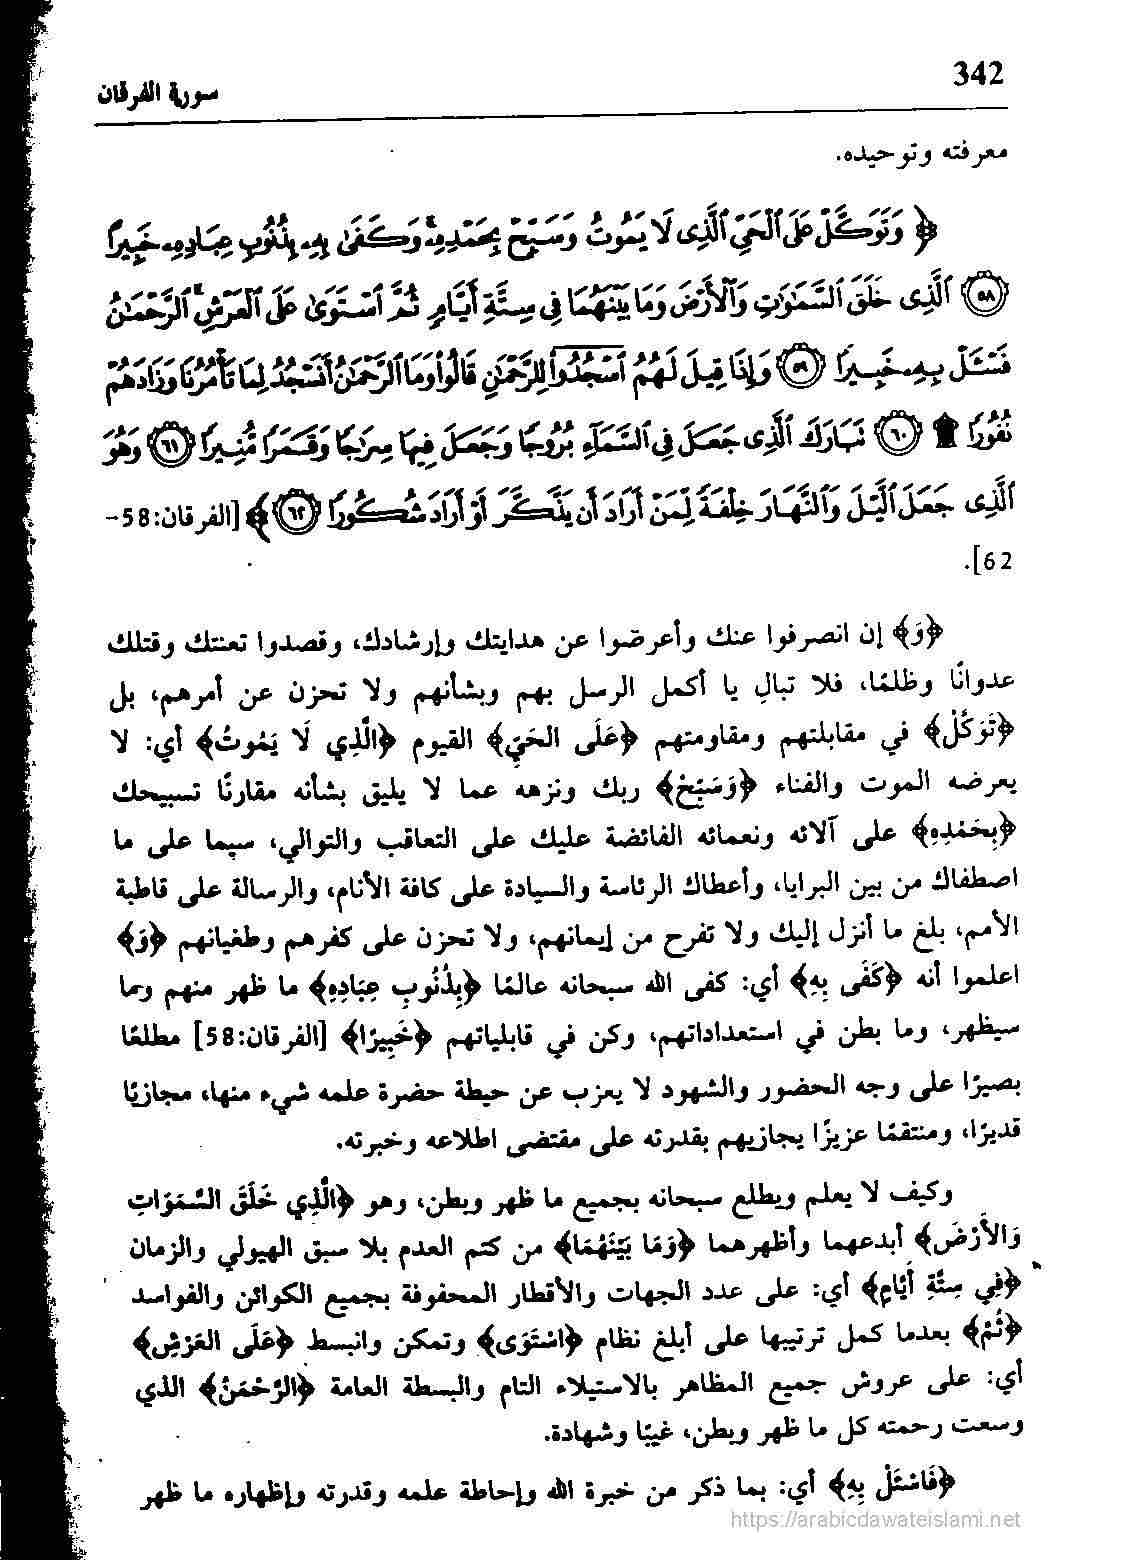 342
سورة الفرقان
معرفته وتوحيده.
﴿ وَتَوَكَّلْ عَلَى ٱلْحَىِّ ٱلَّذِى لَا يَمُوتُ وَسَبِّحْ بِحَمْدِهِۦ ۚ وَكَفَىٰ بِهِۦ بِذُنُوبِ عِبَادِهِۦ خَبِيرًا
﴿٥٨﴾ ٱلَّذِى خَلَقَ ٱلسَّمَٰوَٰتِ وَٱلْأَرْضَ وَمَا بَيْنَهُمَا فِى سِتَّةِ أَيَّامٍ ثُمَّ ٱسْتَوَىٰ عَلَى ٱلْعَرْشِ ۚ ٱلرَّحْمَٰنُ
فَسْـَٔلْ بِهِۦ خَبِيرًا ﴿٥٩﴾ وَإِذَا قِيلَ لَهُمُ ٱسْجُدُوا۟ لِلرَّحْمَٰنِ قَالُوا۟ وَمَا ٱلرَّحْمَٰنُ أَنَسْجُدُ لِمَا تَأْمُرُنَا وَزَادَهُمْ
نُفُورًا ۩ ﴿٦٠﴾ تَبَارَكَ ٱلَّذِى جَعَلَ فِى ٱلسَّمَآءِ بُرُوجًا وَجَعَلَ فِيهَا سِرَٰجًا وَقَمَرًا مُّنِيرًا ﴿٦١﴾ وَهُوَ
ٱلَّذِى جَعَلَ ٱلَّيْلَ وَٱلنَّهَارَ خِلْفَةً لِّمَنْ أَرَادَ أَن يَذَّكَّرَ أَوْ أَرَادَ شُكُورًا ﴿٦٢﴾ ﴾ [الفرقان:58-
62].
﴿وَ﴾ إن انصرفوا عنك وأعرضوا عن هدايتك وإرشادك، وقصدوا تعنتك وقتلك
عدوانًا وظلمًا، فلا تبالِ يا أكمل الرسل بهم وبشأنهم ولا تحزن عن أمرهم، بل
﴿تَوَكَّلْ﴾ في مقابلتهم ومقاومتهم ﴿عَلَى الحَيِّ﴾ القيوم ﴿الَّذِي لَا يَمُوتُ﴾ أي: لا
يعرضه الموت والفناء ﴿وَسَبِّحْ﴾ ربك ونزهه عما لا يليق بشأنه مقارنًا تسبيحك
﴿بِحَمْدِهِ﴾ على آلائه ونعمائه الفائضة عليك على التعاقب والتوالي، سيما على ما
اصطفاك من بين البرايا، وأعطاك الرئاسة والسيادة على كافة الأنام، والرسالة على قاطبة
الأمم، بلغ ما أنزل إليك ولا تفرح من إيمانهم، ولا تحزن على كفرهم وطغيانهم ﴿وَ﴾
اعلموا أنه ﴿كَفَى بِهِ﴾ أي: كفى الله سبحانه عالمًا ﴿بِذُنُوبِ عِبَادِهِ﴾ ما ظهر منهم وما
سيظهر، وما بطن في استعداداتهم، وكن في قابلياتهم ﴿خَبِيرًا﴾ [الفرقان:58] مطلعًا
بصيرًا على وجه الحضور والشهود لا يعزب عن حيطة حضرة علمه شيء منها، مجازيًا
قديرًا، ومنتقمًا عزيزًا يجازيهم بقدرته على مقتضى اطلاعه وخبرته.
وكيف لا يعلم ويطلع سبحانه بجميع ما ظهر وبطن، وهو ﴿الَّذِي خَلَقَ السَّمَوَاتِ
وَالأَرْضَ﴾ أبدعهما وأظهرهما ﴿وَمَا بَيْنَهُمَا﴾ من كتم العدم بلا سبق الهيولي والزمان
﴿فِي سِتَّةِ أَيَّامٍ﴾ أي: على عدد الجهات والأقطار المحفوفة بجميع الكوائن والفواسد
﴿ثُمَّ﴾ بعدما كمل ترتيبها على أبلغ نظام ﴿اسْتَوَى﴾ وتمكن وانبسط ﴿عَلَى العَرْشِ﴾
أي: على عروش جميع المظاهر بالاستيلاء التام والبسطة العامة ﴿الرَّحْمَنُ﴾ الذي
وسعت رحمته كل ما ظهر وبطن، غيبًا وشهادة.
﴿فَاسْئَلْ بِهِ﴾ أي: بما ذكر من خبرة الله وإحاطة علمه وقدرته وإظهاره ما ظهر
https://arabicdawateislami.net